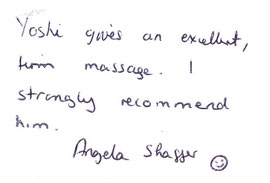 Yoshi gives an excellent,
firm massage. I
strongly recommend
him.
Angela Shagger ☺